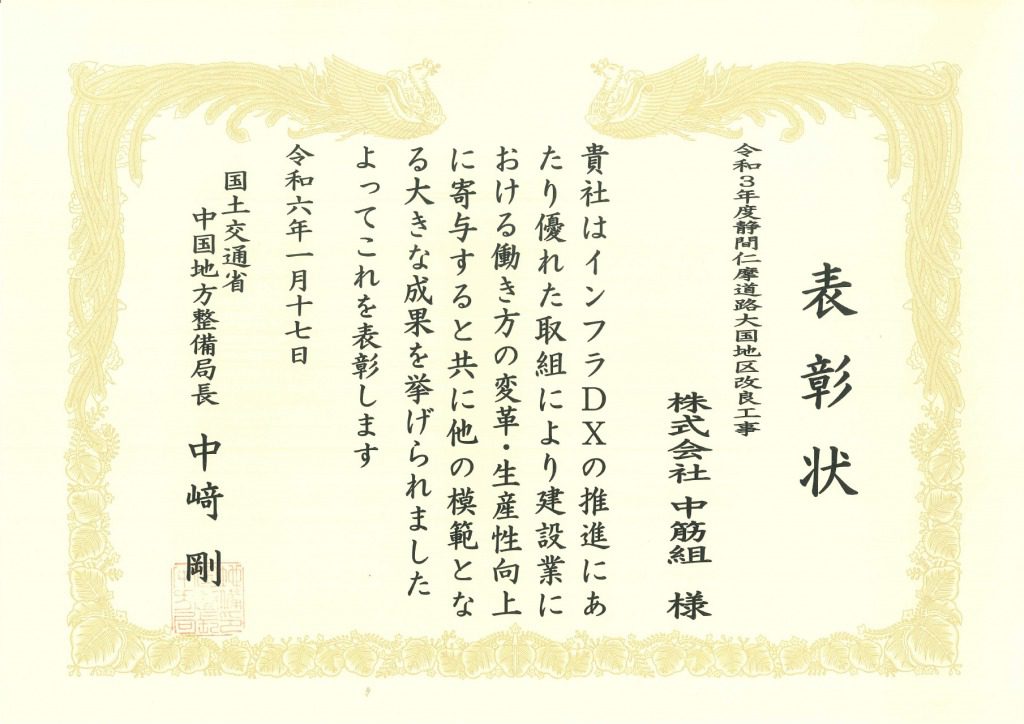 表彰状
令和3年度静間仁摩道路大国地区改良工事
株式会社 中筋組 様
貴社はインフラDXの推進にあ
たり優れた取組により建設業に
おける働き方の変革・生産性向上
に寄与すると共に他の模範とな
る大きな成果を挙げられました
よってこれを表彰します
令和六年一月十七日
国土交通省
中国地方整備局長 中﨑 剛